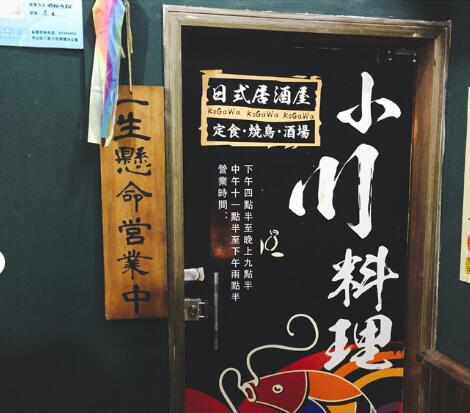 日式居酒屋
KoGaWa KoGaWa KoGaWa
定食·燒鳥·酒場
小川料理
營業時間：
中午十一點半至下午兩點半
下午四點半至晚上九點半
一生懸命營業中